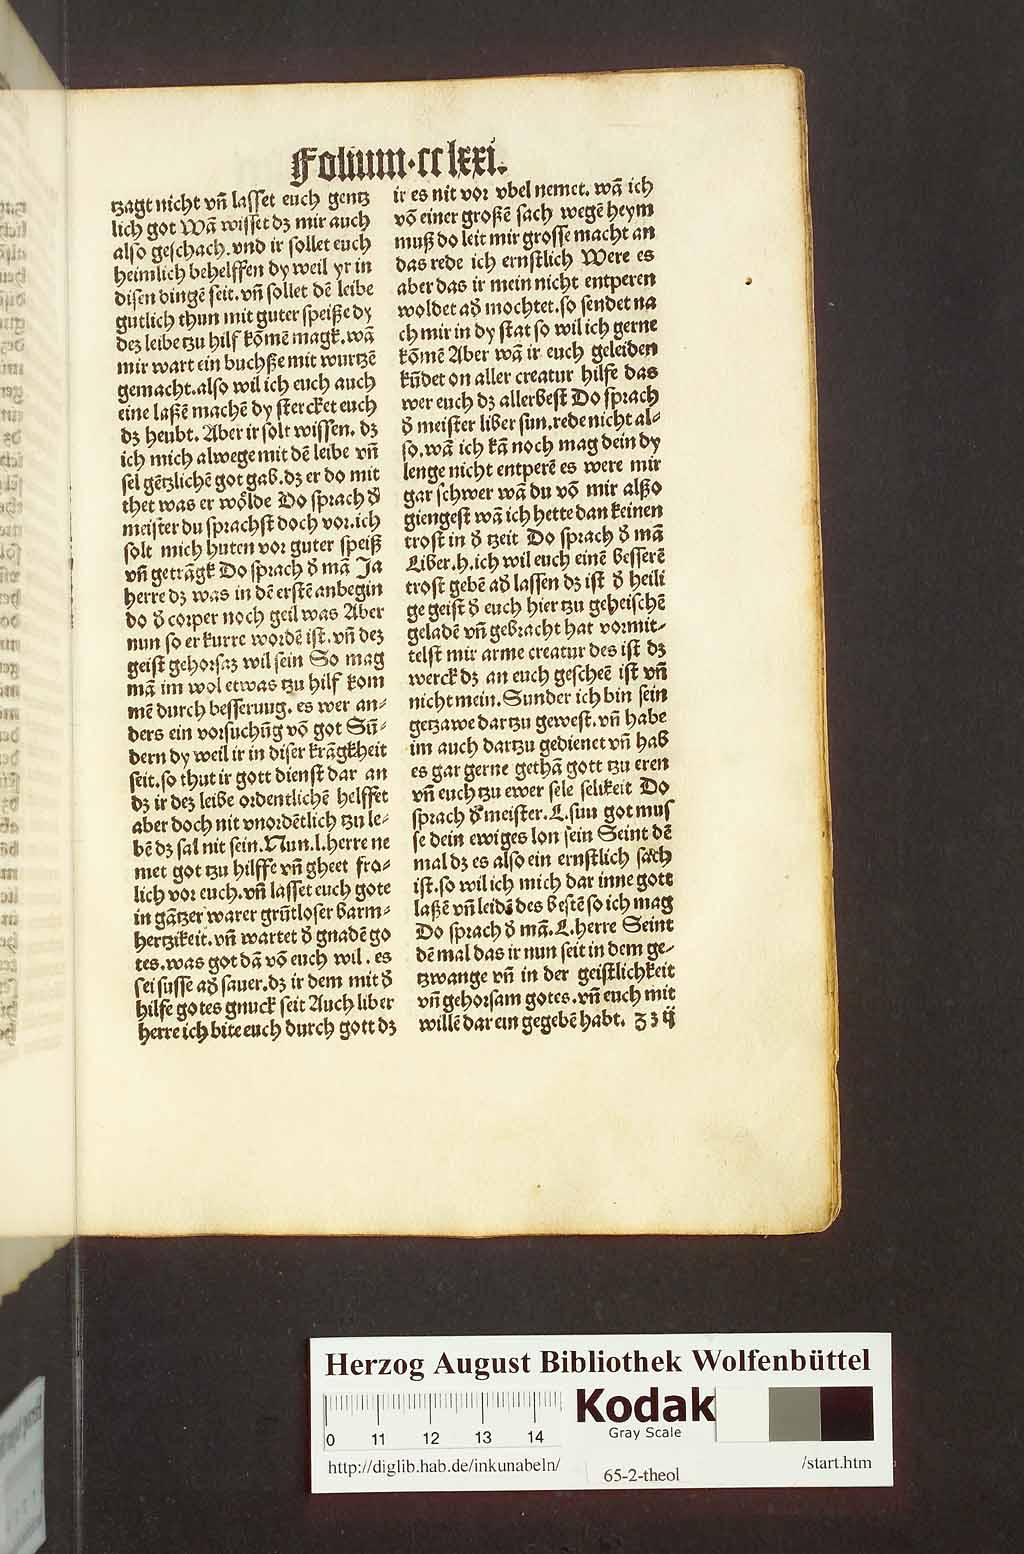 Folium·cclxxi.
tzagt nicht vn̄ lasset euch gentz
lich got Wā wisset dz mir auch
also geschach. vnd ir sollet euch
heimlich behelffen dy weil yr in
disen dingē seit. vn̄ sollet dē leibe
gutlich thun mit guter speiße dy
dez leibe tzu hilf kōmē magk. wā
mir wart ein buchße mit wurtzē
gemacht. also wil ich euch auch
eine laßē machē dy stercket euch
dz heubt. Aber ir solt wissen. dz
ich mich alwege mit dē leibe vn̄
sel gētzlichē got gab. dz er do mit
thet was er wolde Do sprach d̄
meister du sprachst doch vor. ich
solt mich huten vor guter speiß
vn̄ getrāgk Do sprach d̄ mā Ja
herre dz was in dē erstē anbegin
do d̄ corper noch geil was Aber
nun so er kurre wordē ist. vn̄ dez
geist gehorsaz wil sein So mag
mā im wol etwas tzu hilf kom
mē durch besserung. es wer an-
ders ein vorsuchūg vō got Sū-
dern dy weil ir in diser krāgkheit
seit. so thut ir gott dienst dar an
dz ir dez leibe ordentlichē helffet
aber doch nit vnordētlich tzu le-
bē dz sal nit sein. Nun. l. herre ne
met got tzu hilffe vn̄ gheet fro-
lich vor euch. vn̄ lasset euch gote
in gātzer warer grūtloser barm-
hertzikeit. vn̄ wartet d̄ gnadē go
tes. was got dā vō euch wil. es
sei susse ad̄ sauer. dz ir dem mit d̄
hilfe gotes gnuck seit Auch liber
herre ich bite euch durch gott dz
ir es nit vor vbel nemet. wā ich
vō einer großē sach wegē heym
muß do leit mir grosse macht an
das rede ich ernstlich Were es
aber das ir mein nicht entperen
woldet ad̄ mochtet. so sendet na
ch mir in dy stat so wil ich gerne
kōmē Aber wā ir euch geleiden
kūdet on aller creatur hilfe das
wer euch dz allerbest Do sprach
d̄ meister liber sun. rede nicht al-
so. wā ich kā noch mag dein dy
lenge nicht entperē es were mir
gar schwer wā du vō mir alßo
giengest wā ich hette dan keinen
trost in d̄ tzeit Do sprach d̄ mā
Liber. h. ich wil euch einē besserē
trost gebē ad̄ lassen dz ist d̄ heili
ge geist d̄ euch hier tzu geheischē
geladē vn̄ gebracht hat vormit-
telst mir arme creatur des ist dz
werck dz an euch gescheē ist vn̄
nicht mein. Sunder ich bin sein
getzawe dar tzu gewest. vn̄ habe
im auch dartzu gedienet vn̄ hab
es gar gerne gethā gott tzu eren
vn̄ euch tzu ewer sele selikeit Do
sprach d̄ meister. L. sun got mus
se dein ewiges lon sein Seint dē
mal dz es also ein ernstlich sach
ist. so wil ich mich dar inne gott
laßē vn̄ leidē des bestē so ich mag
Do sprach d̄ mā. L. herre Seint
dē mal das ir nun seit in dem ge-
tzwange vn̄ in der geistlichkeit
vn̄ gehorsam gotes. vn̄ euch mit
willē dar ein gegebē habt. Zz ij
Herzog August Bibliothek Wolfenbüttel
Kodak
Gray Scale
0 11 12 13 14
http://diglib.hab.de/inkunabeln/
65-2-theol
/start.htm